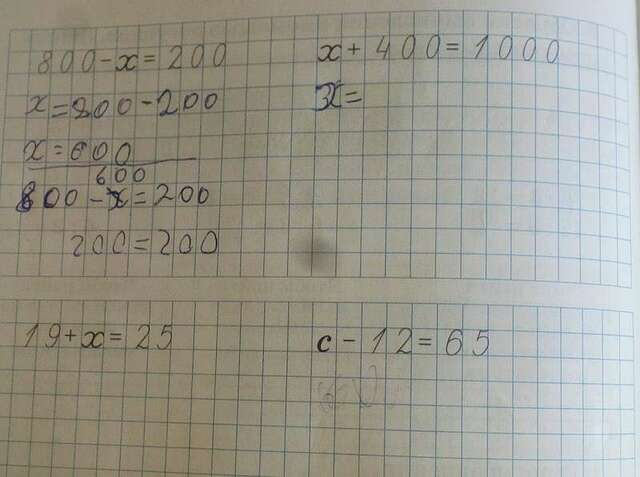 800-x=200
x=800-200
x=600
600
800-x=200
200=200
x+400=1000
x=
19+x=25
c-12=65